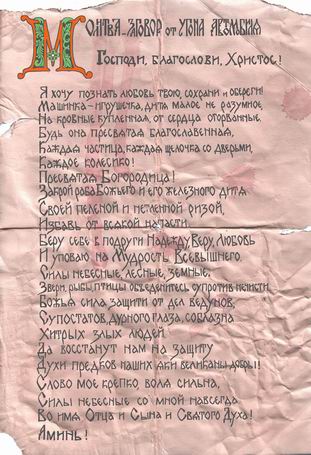 Молитва-заговор от угона автомобиля
Господи, благослови, Христос!
Я хочу познать любовь твою, сохрани и обереги!
Машинка-игрушечка, дитя малое не разумное,
На кровные купленная, от сердца оторванные.
Будь она пресвятая благословенная,
Каждая частица, каждая щелочка со дверьми,
Каждое колесико!
Пресвятая Богородица!
Закрой раба Божьего и его железного дитя
Своей пеленой и нетленной ризой,
Избавь от всякой напасти.
Беру себе в подруги Надежду, Веру, Любовь
И уповаю на Мудрость Всевышнего.
Силы небесные, лесные, земные,
Звери, рыбы, птицы объеденитесь супротив нечисти.
Божья сила, защити от дел ведунов,
Супостатов, дурного глаза, соблазна
Хитрых злых людей.
Да восстанут нам на защиту
Духи предков наших, яки великаны добры!
Слово мое крепко, воля сильна,
Силы небесные со мной навсегда
Во имя Отца и Сына и Святого Духа!
Аминь!